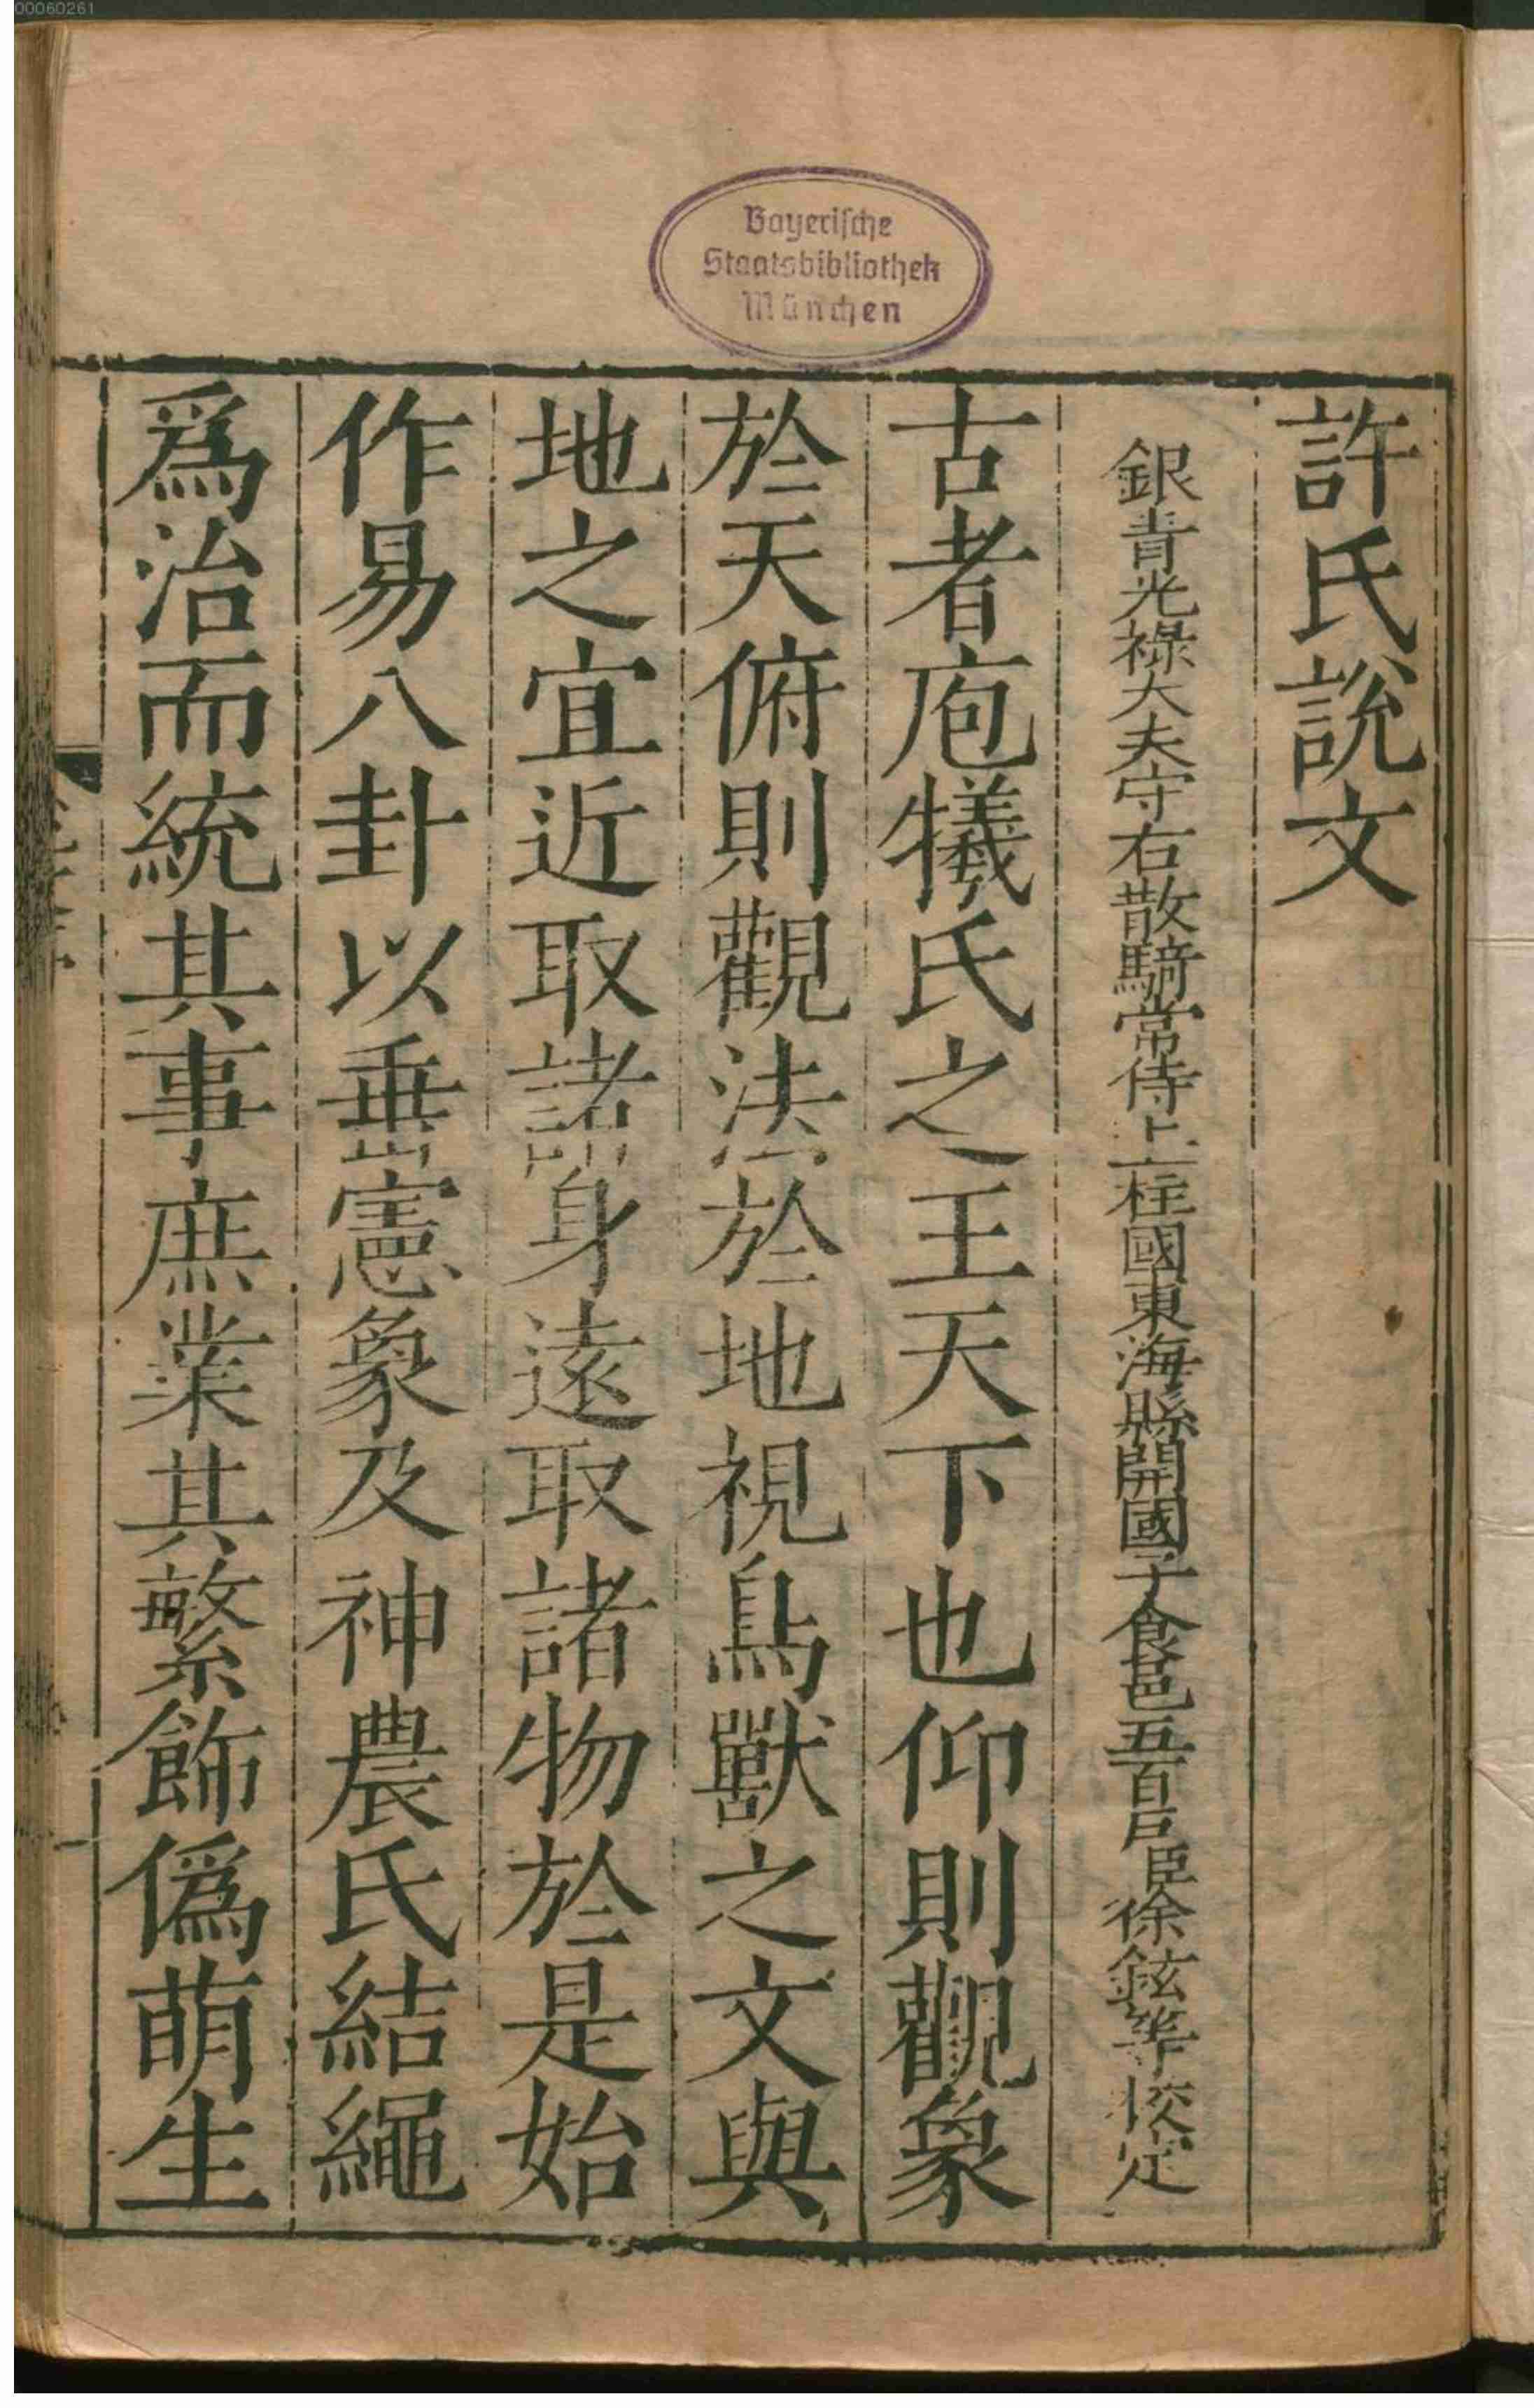 00060261
Bayerische
Staatsbibliothek
München
許氏說文
銀青光祿大夫守右散騎常侍上柱國東海縣開國子食邑五百戶臣徐鉉等挍定
古者庖犧氏之王天下也仰則觀象
於天俯則觀法於地視鳥獸之文與
地之宜近取諸身遠取諸物於是始
作易八卦以垂憲象及神農氏結繩
爲治而統其事庶業其繁飾僞萌生